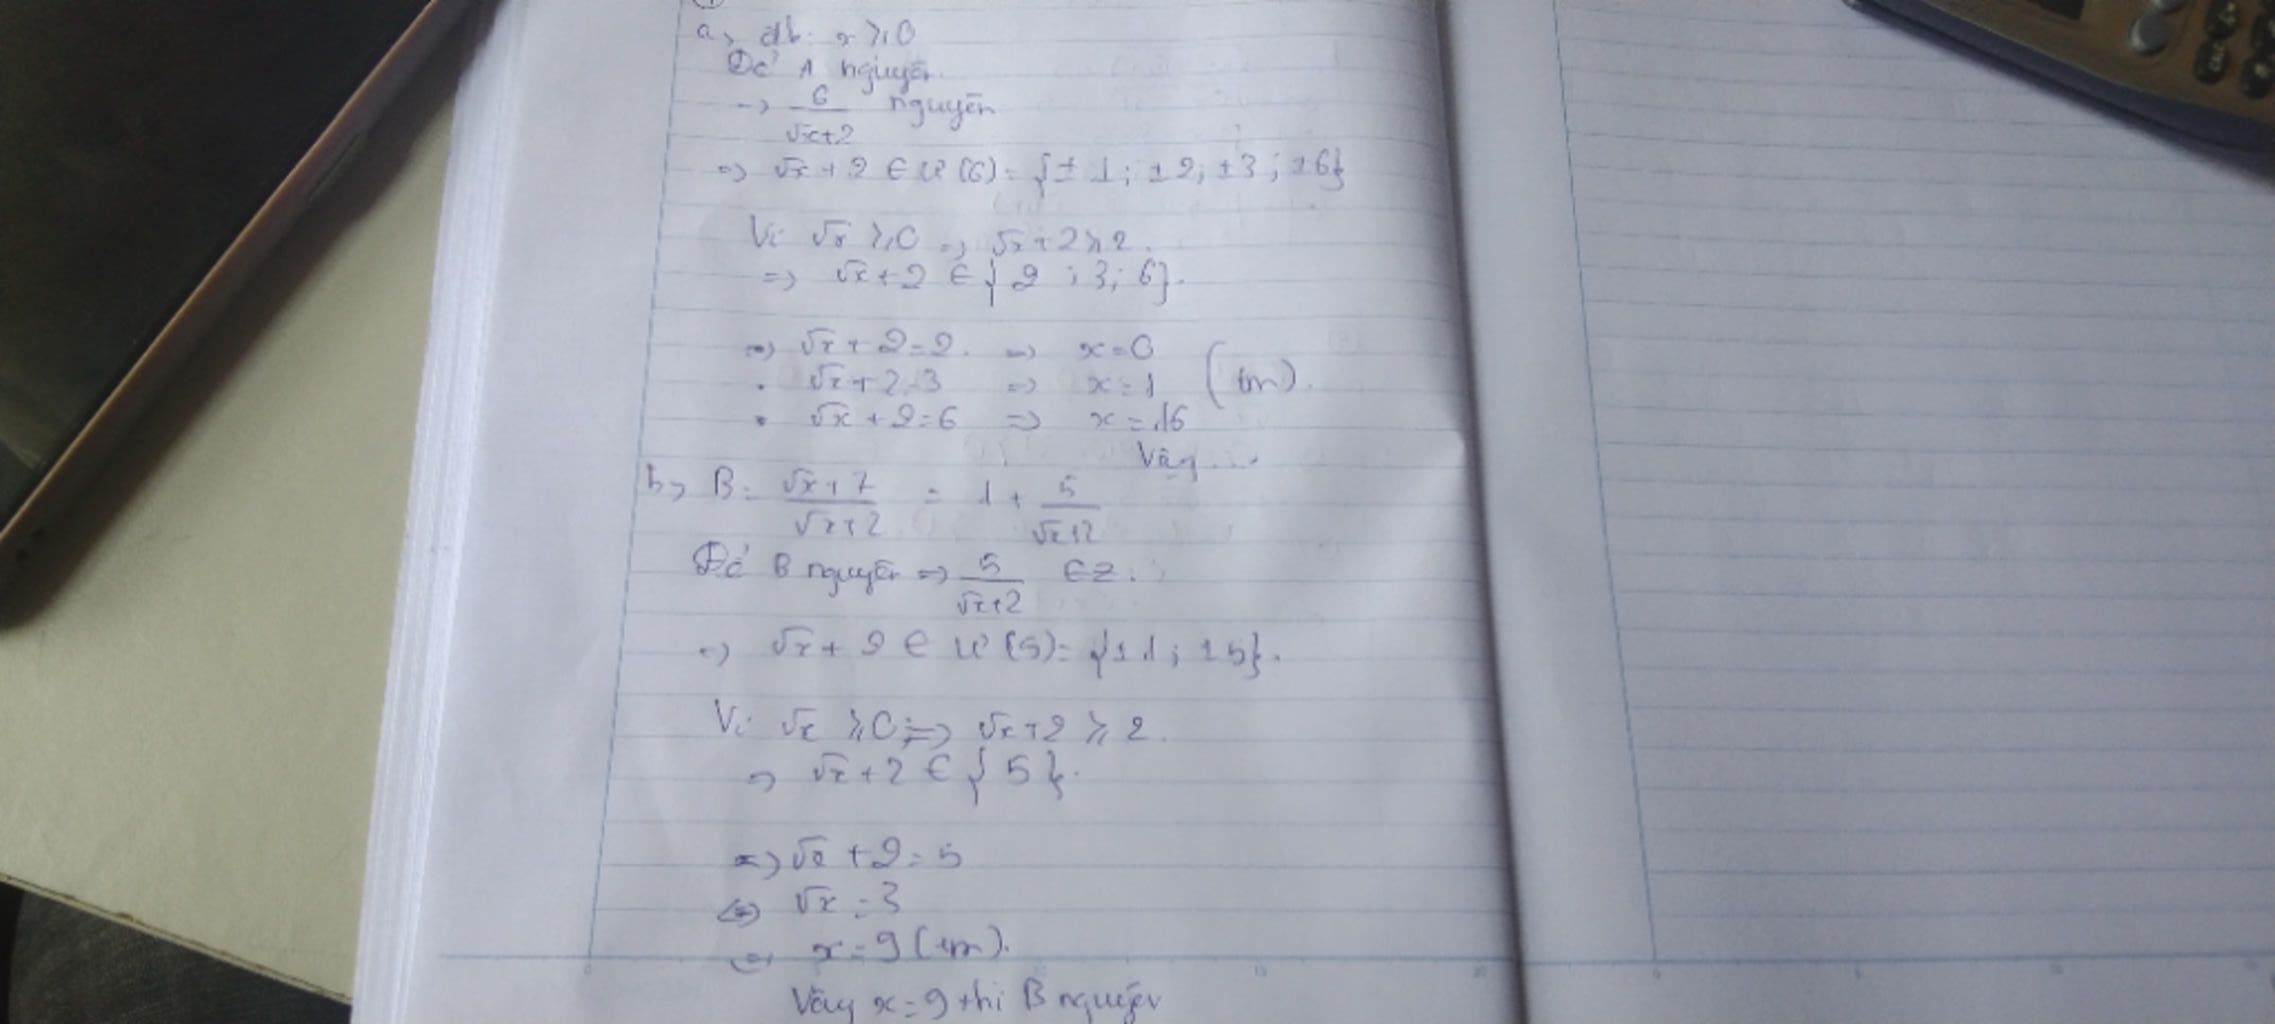 a, đk: x ≥ 0
Để A nguyên
=> 6/(√x+2) nguyên
=> √x + 2 ∈ Ư(6) = {± 1; ± 2; ±3; ±6}
Vì √x ≥ 0 => √x + 2 ≥ 2.
=> √x + 2 ∈ { 2 ; 3; 6}.
=> √x + 2 = 2. => x = 0
• √x + 2 = 3 => x = 1 (tm).
• √x + 2 = 6 => x = 16
Vậy ...
b, B = (√x+7)/(√x+2) = 1 + 5/(√x+2)
Để B nguyên => 5/(√x+2) ∈ Z.
=> √x + 2 ∈ Ư(5) = {±1; ±5}.
Vì √x ≥ 0 => √x + 2 ≥ 2.
=> √x + 2 ∈ { 5 }.
=> √x + 2 = 5
<=> √x = 3
<=> x = 9 (tm).
Vậy x = 9 thì B nguyên